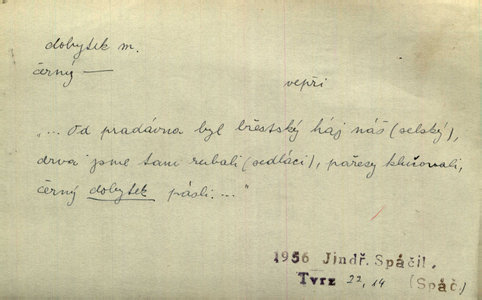 dobytek m.
černý —
vepři
„... Od pradávna byl břestský háj náš (selský),
drva jsme tam rubali (sedláci), pařezy klučovali,
černý dobytek pásli...“
1956 Jindř. Spáčil,
Tvrz 22, 14 (Spáč.)